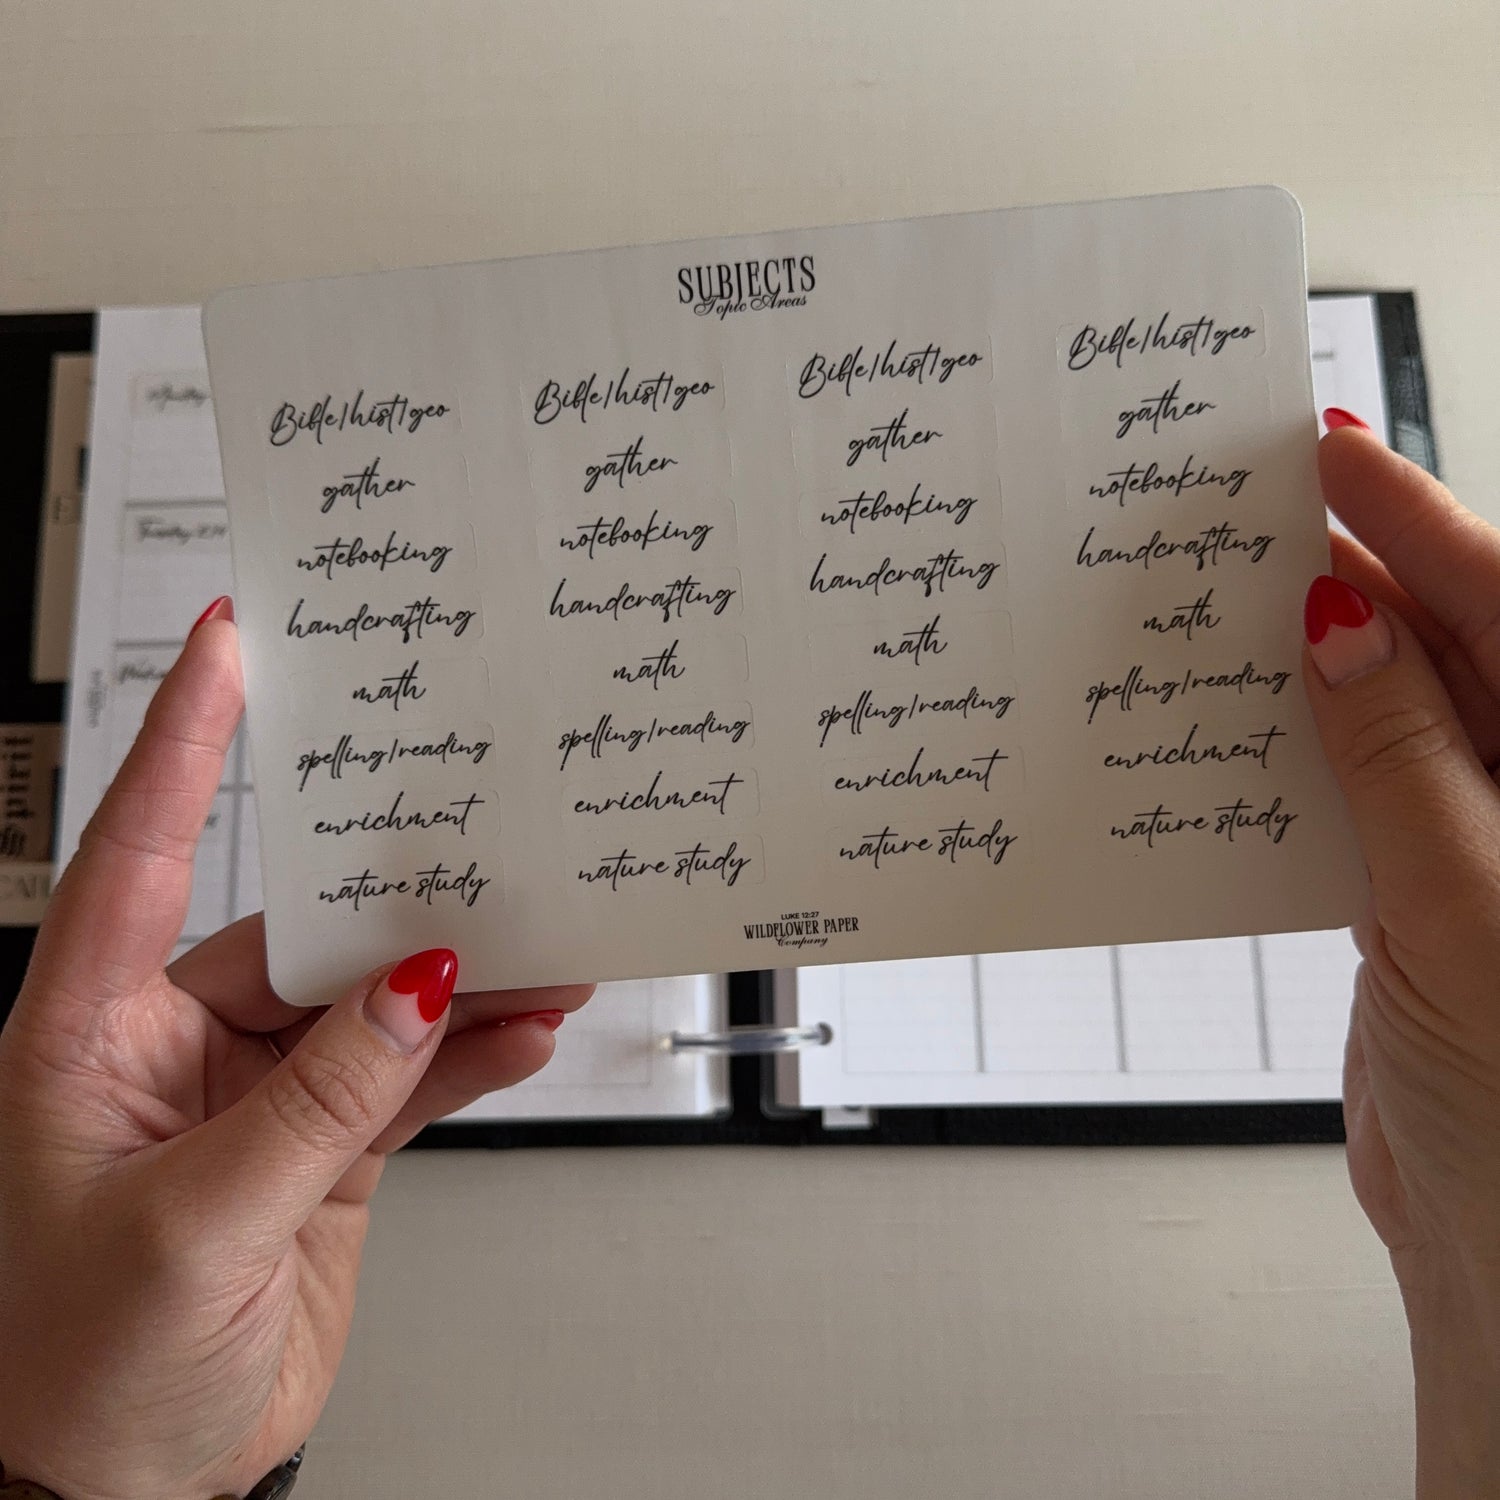 SUBJECTS
Topic Areas
Bible/hist/geo Bible/hist/geo Bible/hist/geo Bible/hist/geo
gather gather gather gather
notebooking notebooking notebooking notebooking
handcrafting handcrafting handcrafting handcrafting
math math math math
spelling/reading spelling/reading spelling/reading spelling/reading
enrichment enrichment enrichment enrichment
nature study nature study nature study nature study
LUKE 12:27
WILDFLOWER PAPER
Company